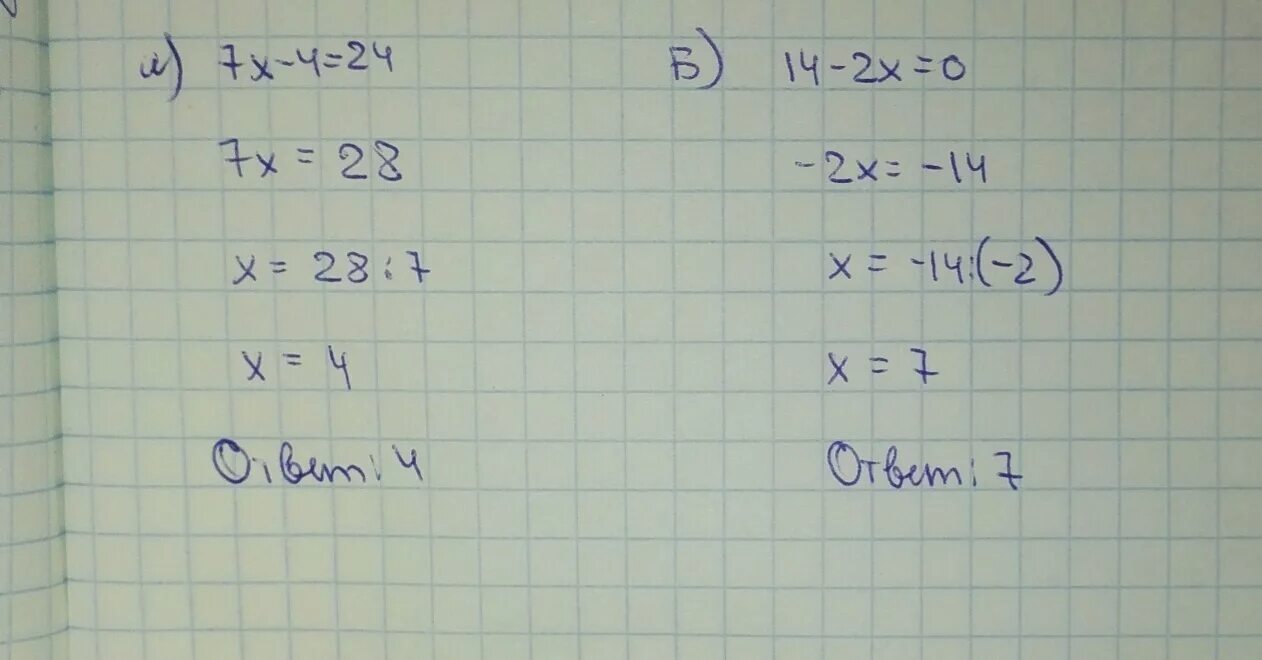 а) 7x-4=24
7x = 28
x = 28:7
x = 4
Ответ: 4
Б) 14-2x=0
-2x= -14
x = -14:(-2)
x = 7
Ответ: 7